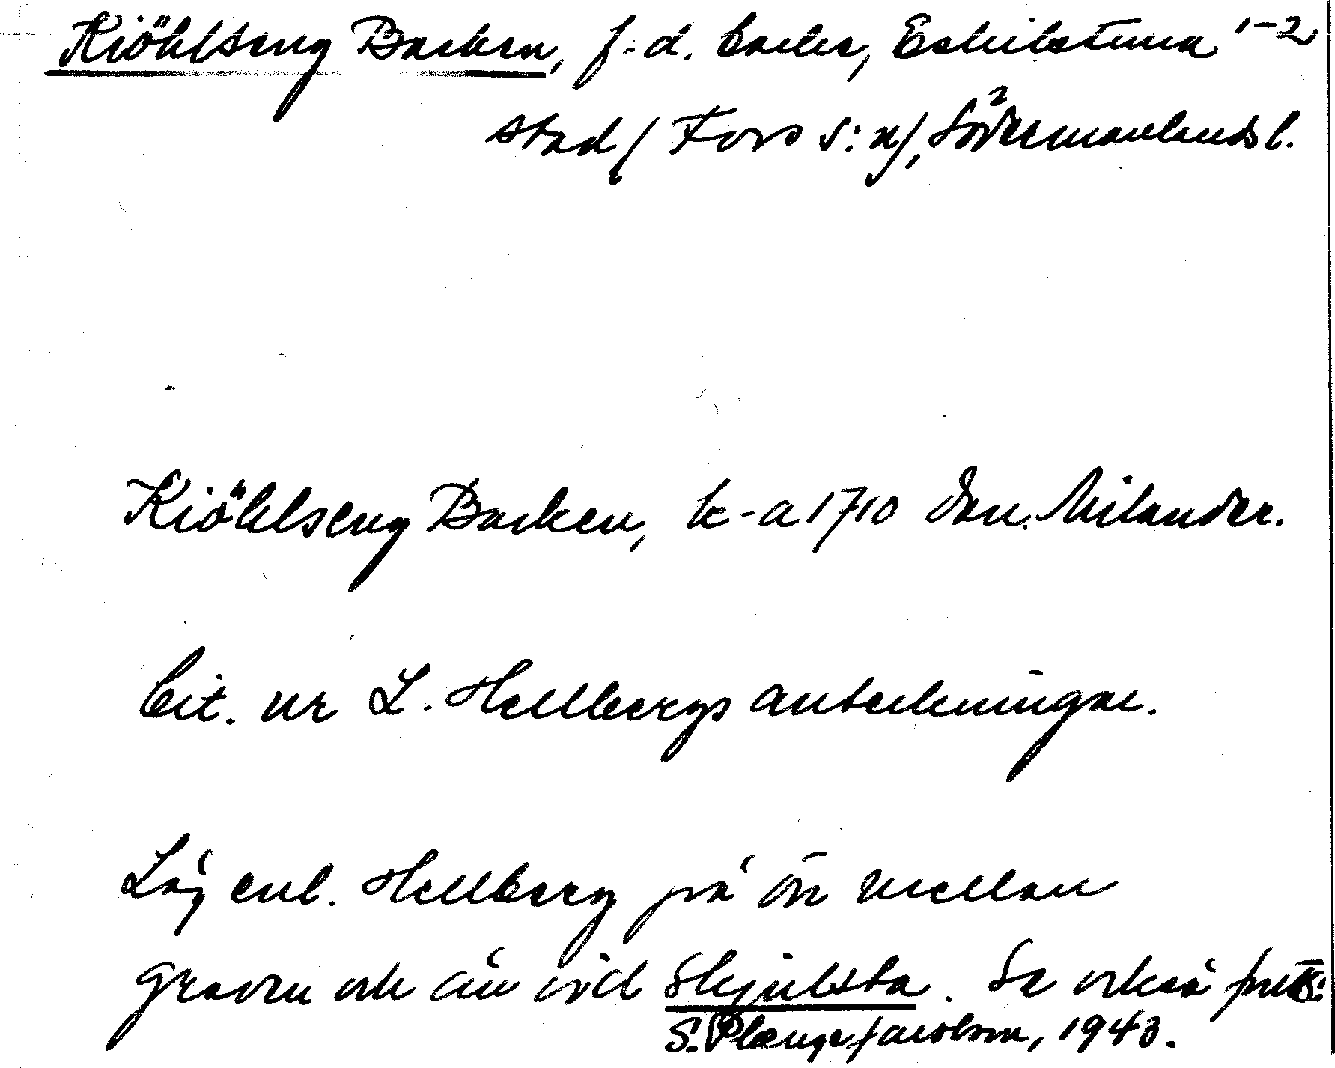 Kiöhlseng Backen, f.d. backe, Eskilstuna 1-2
stad (Fors s:n), 2 Södermanlands l.
Kiöhlseng Backen, k-a 1710 Dan. Milander.
Cit. ur L. Hellbergs anteckningar.
Låg enl. Hellberg på ön mellan
graven och ån vid Skjulsta. Se också
S. Plænge Jacobson, 1943.